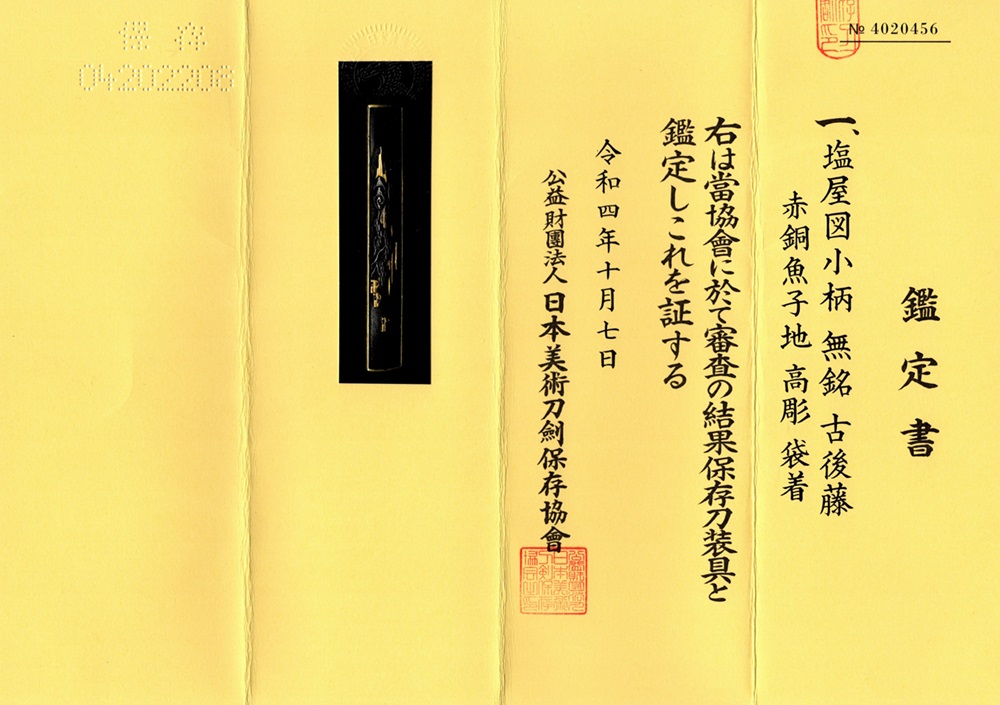 № 4020456
鑑定書
一、塩屋図小柄 無銘 古後藤
赤銅魚子地 高彫 袋着
右は當協會に於て審査の結果保存刀装具と
鑑定しこれを証する
令和四年十月七日
公益財團法人 日本美術刀劍保存協會
保存
04202208